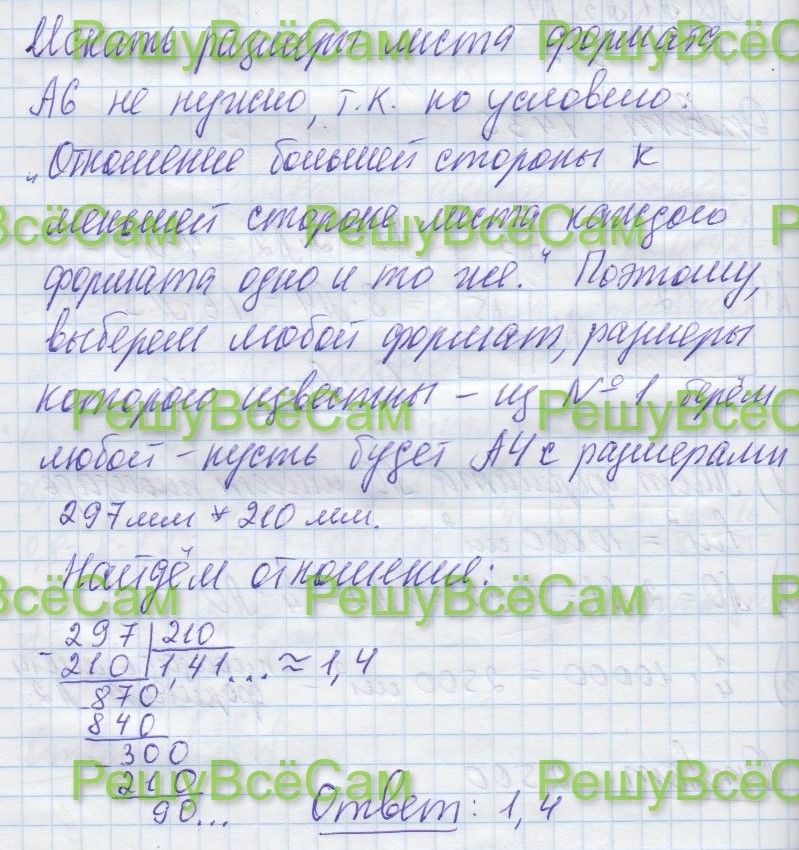 Искать размеры листа формата
А6 не нужно, т.к. по условию:
„Отношение большей стороны к
меньшей стороне листа каждого
формата одно и то же.“ Поэтому,
выберем любой формат, размеры
которого известны – из №1 берём
любой – пусть будет А4 с размерами
297 мм * 210 мм.
Найдём отношение:
297 | 210
- 210 | 1,41... ≈ 1,4
- 870
840
- 300
210
90...
Ответ: 1,4
РешуВсёСам РешуВсёСам
РешуВсёСам РешуВсёСам
РешуВсёСам РешуВсёСам
РешуВсёСам РешуВсёСам
РешуВсёСам РешуВсёСам